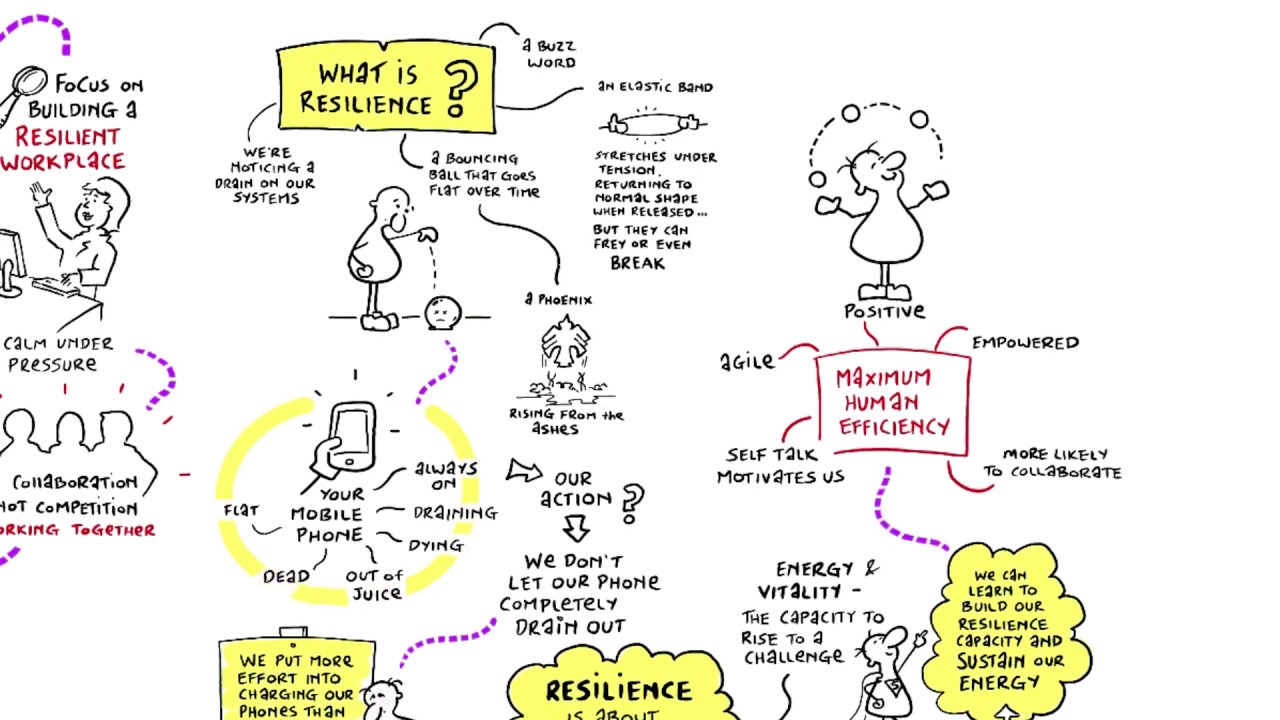 FOCUS ON
BUILDING A
RESILIENT
WORKPLACE
CALM UNDER
PRESSURE
COLLABORATION
NOT COMPETITION
WORKING TOGETHER
WHAT IS
RESILIENCE ?
WE'RE
NOTICING A
DRAIN ON OUR
SYSTEMS
A BUZZ
WORD
AN ELASTIC BAND
STRETCHES UNDER
TENSION,
RETURNING TO
NORMAL SHAPE
WHEN RELEASED...
BUT THEY CAN
FREY OR EVEN
BREAK
A BOUNCING
BALL THAT GOES
FLAT OVER TIME
A PHOENIX
RISING FROM THE
ASHES
YOUR
MOBILE
PHONE
ALWAYS
ON
DRAINING
DYING
OUT OF
JUICE
DEAD
FLAT
OUR
ACTION ?
WE DON'T
LET OUR PHONE
COMPLETELY
DRAIN OUT
WE PUT MORE
EFFORT INTO
CHARGING OUR
PHONES THAN
RESILIENCE
IS ABOUT
POSITIVE
AGILE
EMPOWERED
MAXIMUM
HUMAN
EFFICIENCY
SELF TALK
MOTIVATES US
MORE LIKELY
TO COLLABORATE
ENERGY &
VITALITY -
THE CAPACITY TO
RISE TO A
CHALLENGE
S
WE CAN
LEARN TO
BUILD OUR
RESILIENCE
CAPACITY AND
SUSTAIN OUR
ENERGY